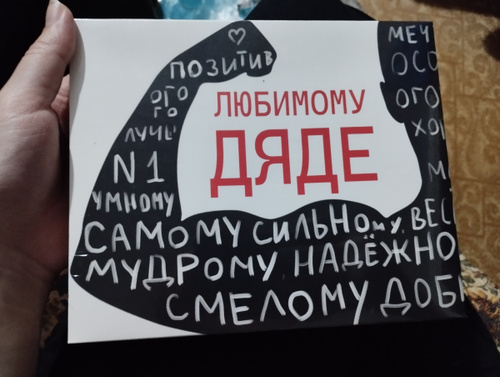 ПОЗИТИВ
ОГО
ГО
N1
УМНОМУ
ЛЮБИМОМУ
ДЯДЕ
МЕЧ
ОСО
ОГО
САМОМУ СИЛЬНОМУ, ВЕС
МУДРОМУ НАДЁЖНО
СМЕЛОМУ ДОБ